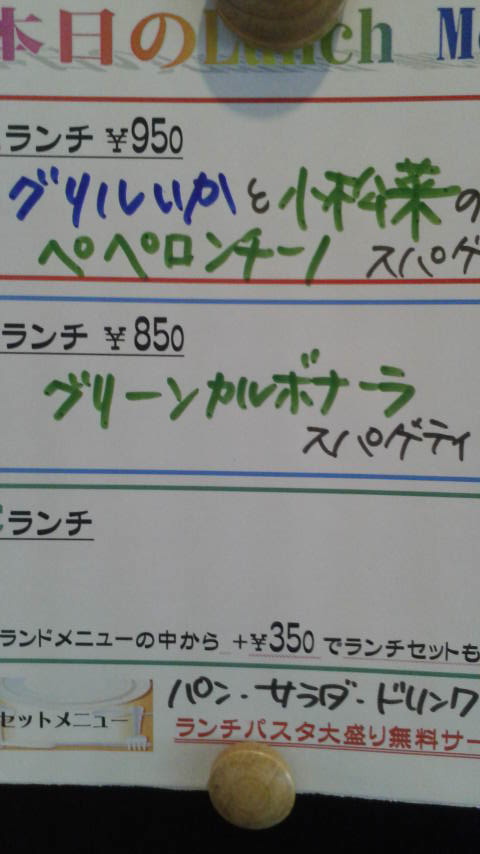 本日のLunch M
ランチ ¥950
グリルいかと小松菜の
ペペロンチーノ スパゲ
ランチ ¥850
グリーンカルボナーラ
スパゲティ
ランチ
ランドメニューの中から +¥350 でランチセットも
セットメニュー
パン・サラダ・ドリンク
ランチパスタ大盛り無料サー